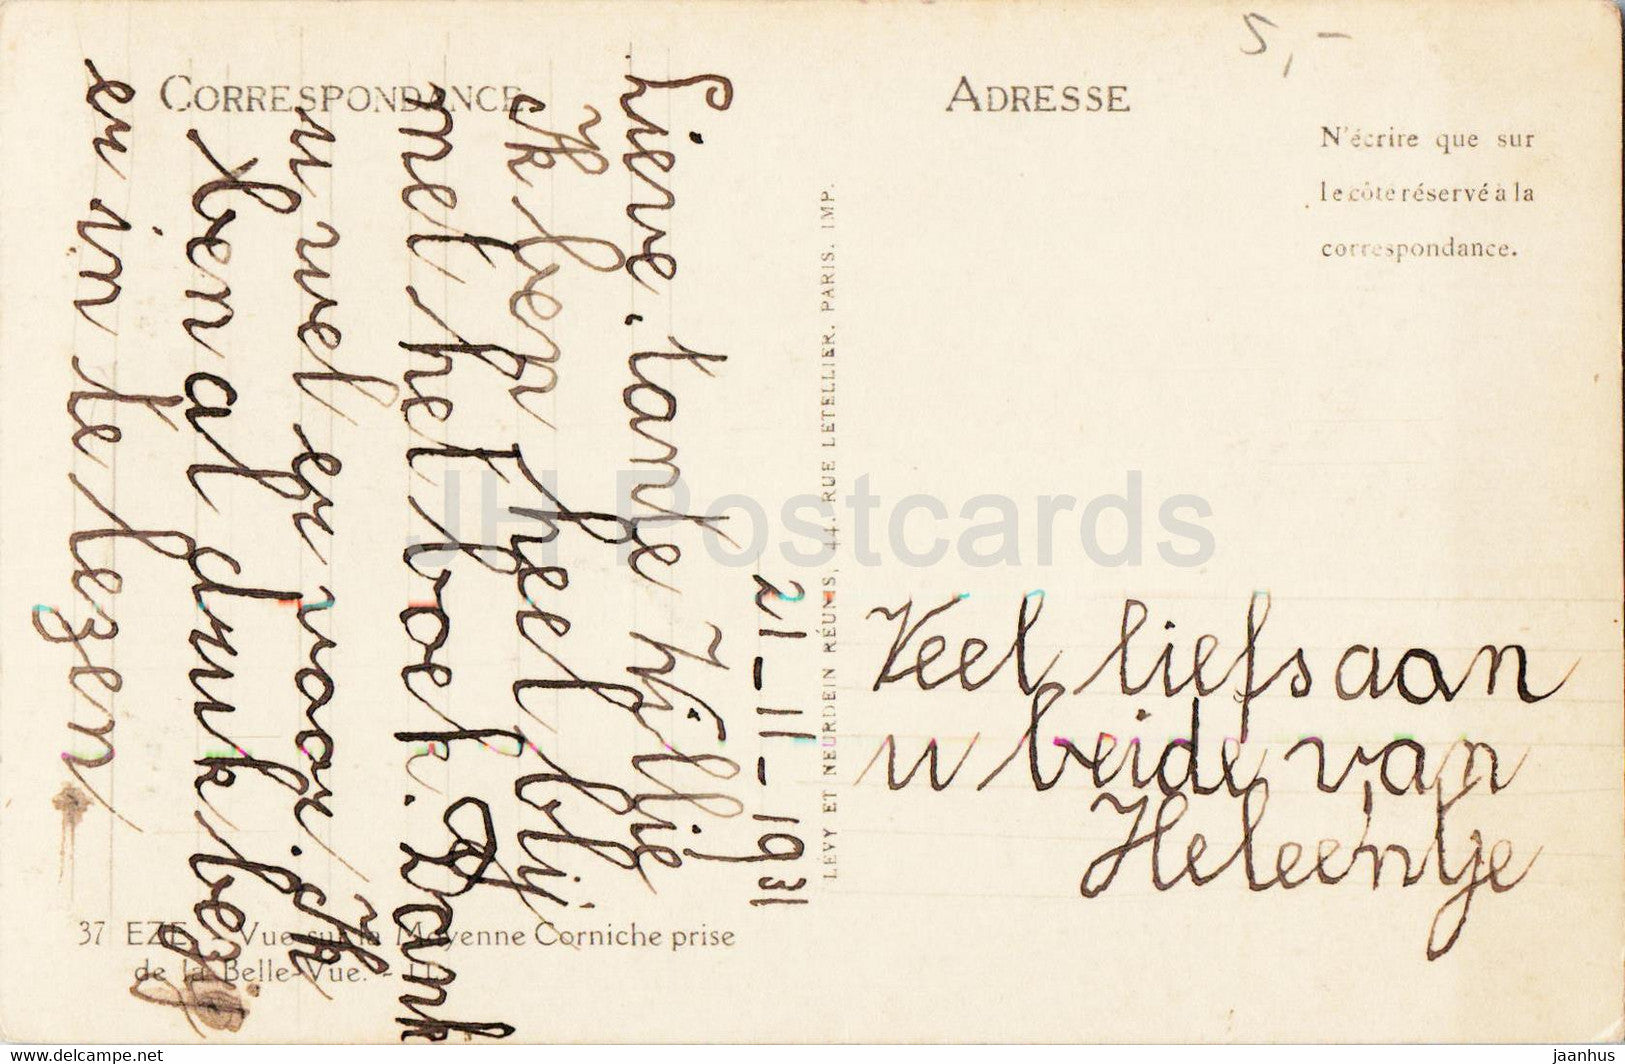 5,-
CORRESPONDANCE
ADRESSE
N'écrire que sur
le côté réservé à la
correspondance.
21-11-1931
Lieve tante Willie
Ik ben heel blij
met het boek. Dank
u wel er voor. Ik
ben al druk bezig
er in te lezen
Veel liefs aan
u beide van
Heleentje
LÉVY ET NEURDEIN RÉUNIS, 44, RUE LETELLIER, PARIS. IMP.
37 EZE. - Vue sur la Moyenne Corniche prise
de la Belle-Vue. - LL.
JH Postcards
www.delcampe.net
jaanhus